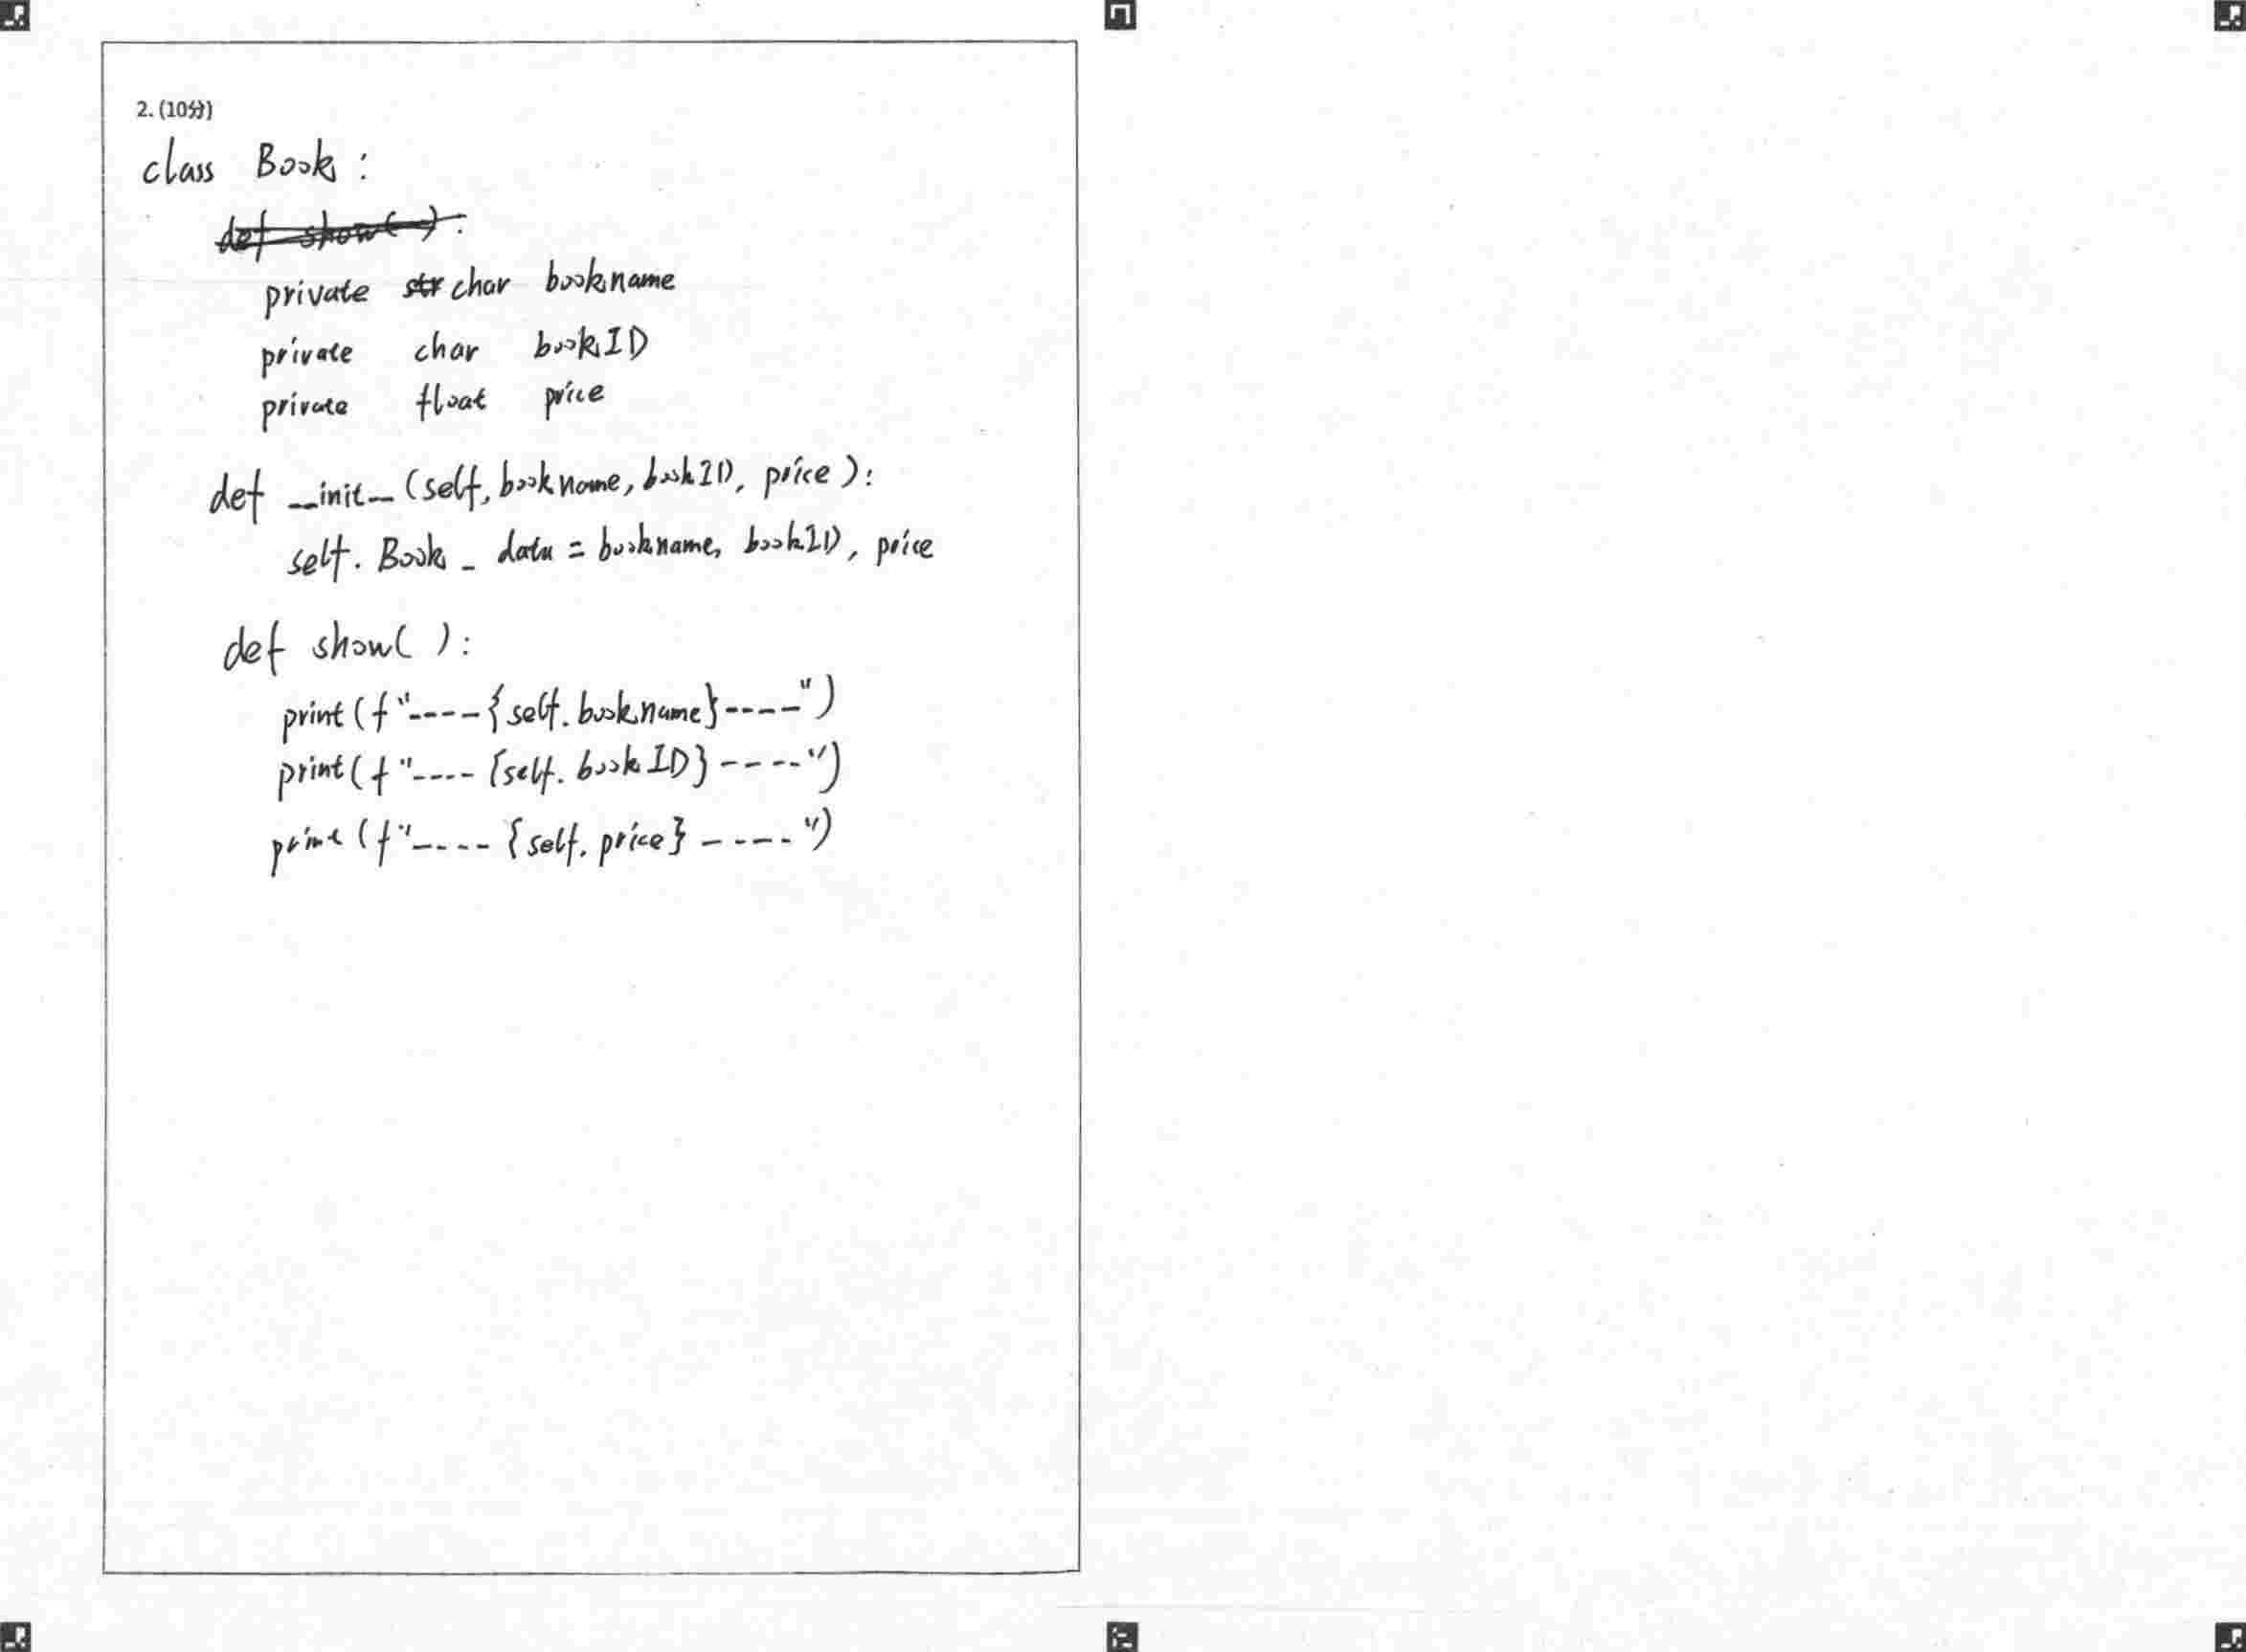 2. (10分)
class Book :
def show( ) :
private str char bookname
private char bookID
private float price
def __init__(self, bookname, bookID, price ):
self. Book _ data = bookname, bookID, price
def show( ):
print(f"----{self. bookname}----")
print(f"---- {self. bookID} ----")
print (f"---- {self. price} ----")